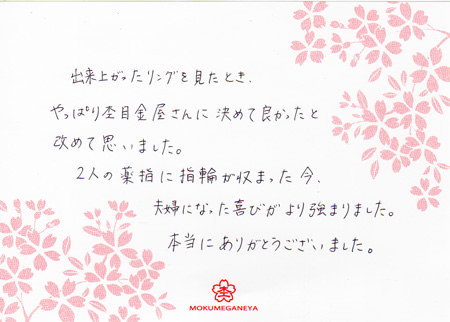 出来上がったリングを見たとき、
やっぱり杢目金屋さんに決めて良かったと
改めて思いました。
2人の薬指に指輪が収まった今、
夫婦になった喜びがより強まりました。
本当にありがとうございました。
杢
MOKUMEGANEYA